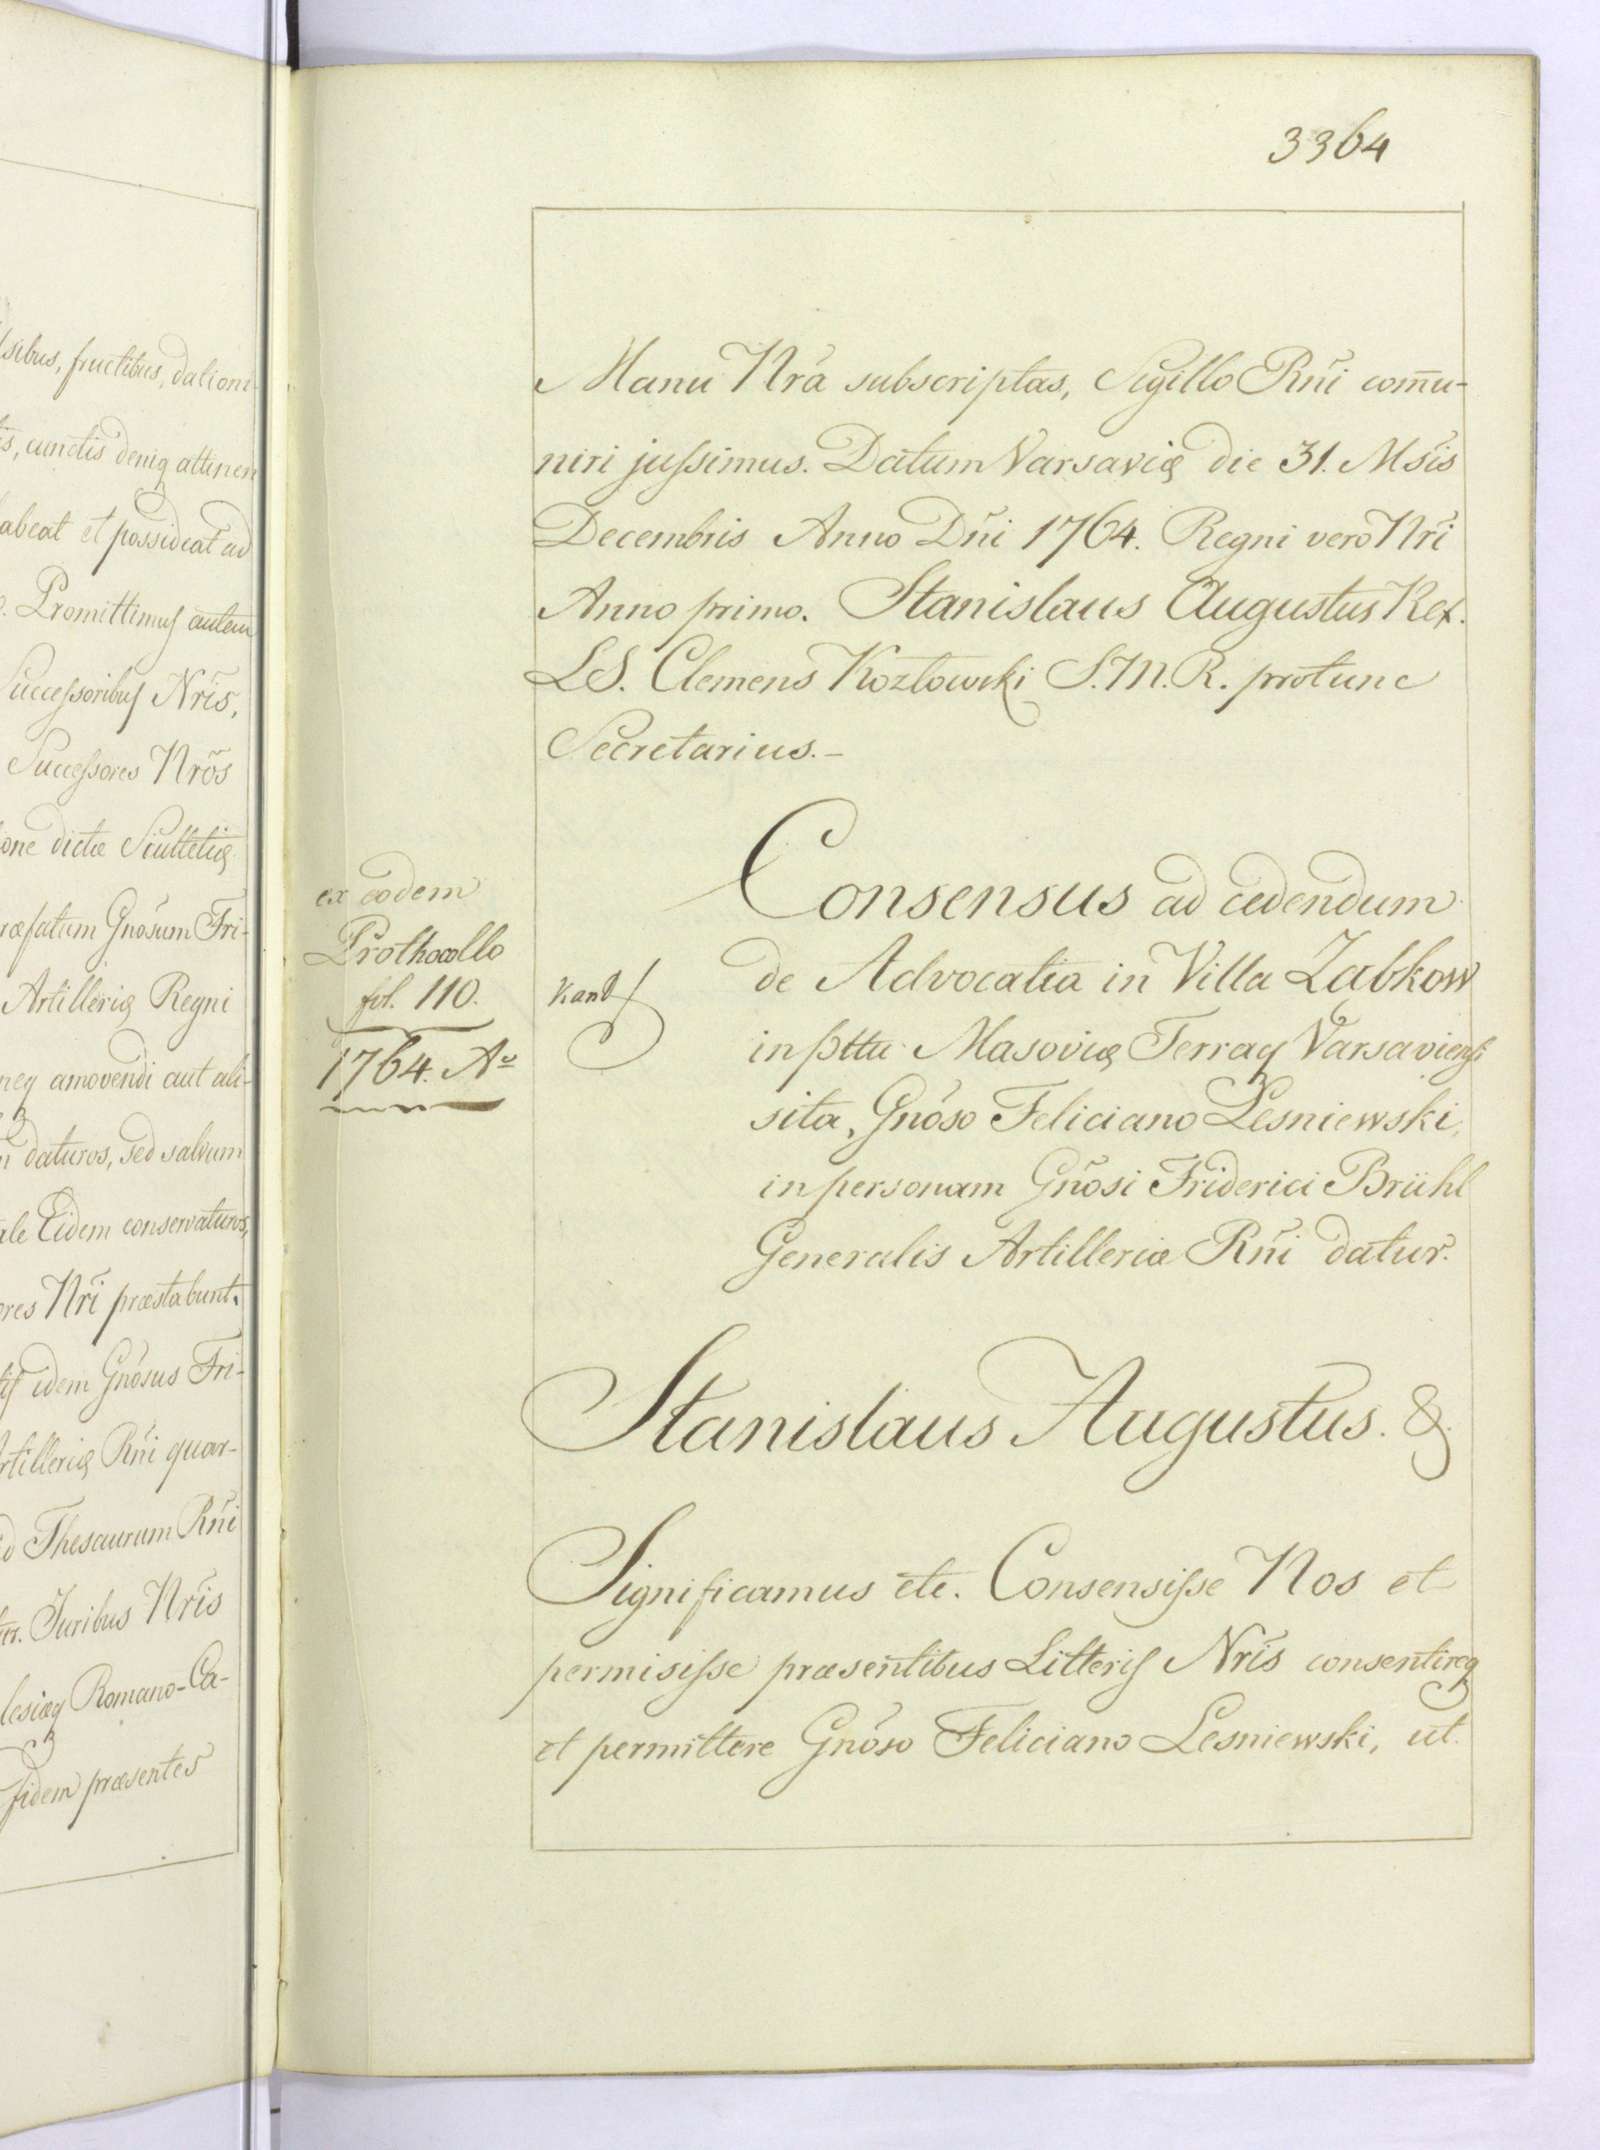 sibus, fructibus, dationi-
is, cunctis deniq attinen
abeat et possideat ad
Promittimus autem
Successoribus Nrĩs,
Successores Nrõs
one dictæ Scultetiæ
ræfatum Gnõsum Fri-
Artilleriæ Regni
neq amovendi aut ali-
daturos, sed salvum
ale Eidem conservaturos,
ores Nrĩ præstabunt.
idem Gnõsus Fri-
Artilleriæ Rñi quar-
Thesaurum Rñi
Juribus Nrĩs
lesiæq Romano-Ca-
fidem præsentes
3364
Manu Nrã subscriptas, Sigillo Rñi com̃u-
niri jussimus. Datum Varsaviæ die 31. Msĩs
Decembris Anno Dñi 1764. Regni vero Nrĩ
Anno primo. Stanislaus Augustus Rex.
LS. Clemens Kozłowski S.M.R. protunc
Secretarius.-
ex eodem
Prothocollo
fol. 110.
1764. Aº
Kand
Consensus ad cedendum
de Advocatia in Villa Ząbkow
in pttu Masoviæ Terraq Varsaviensi
sita, Gnõso Feliciano Lesniewski,
in personam Gnõsi Friderici Brühl
Generalis Artilleriæ Rñi datur.
Stanislaus Augustus. &.
Significamus etc. Consensisse Nos et
permisisse præsentibus Litteris Nrĩs consentireq
et permittere Gnõso Feliciano Lesniewski, ut